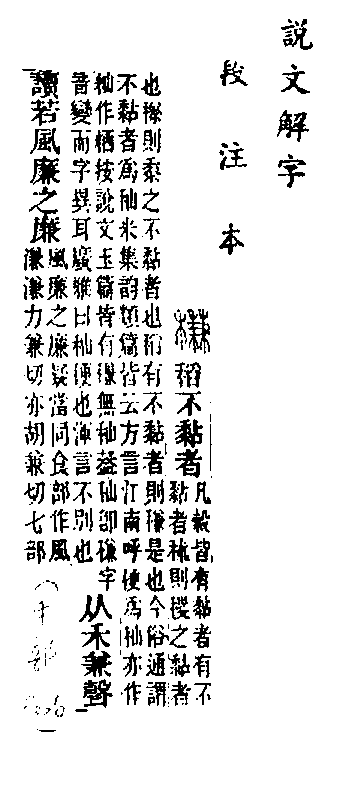 說文解字
段注本
稻不黏者
凡穀皆有黏者有不
黏者秫則稷之黏者
也穄則黍之不黏者也稻有不黏者則稴是也今俗通謂
不黏者爲秈米集韵類篇皆云方言江南呼稉爲秈亦作
秈作按說文玉篇皆有稴無秈蓋秈卽稴字
音變而字異耳廣雅曰秈稉也渾言不別也
从禾兼聲
讀若風廉之廉
風廉之廉疑當同食部作風
溓溓力兼切亦胡兼切七部